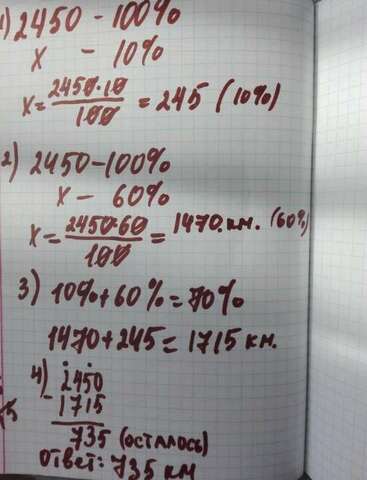 1) 2450 - 100%
x - 10%
x = 2450·10/100 = 245 (10%)
2) 2450 - 100%
x - 60%
x = 2450·60/100 = 1470 км. (60%)
3) 10% + 60% = 70%
1470 + 245 = 1715 км.
4) 2450
- 1715
735 (осталось)
ответ: 735 км